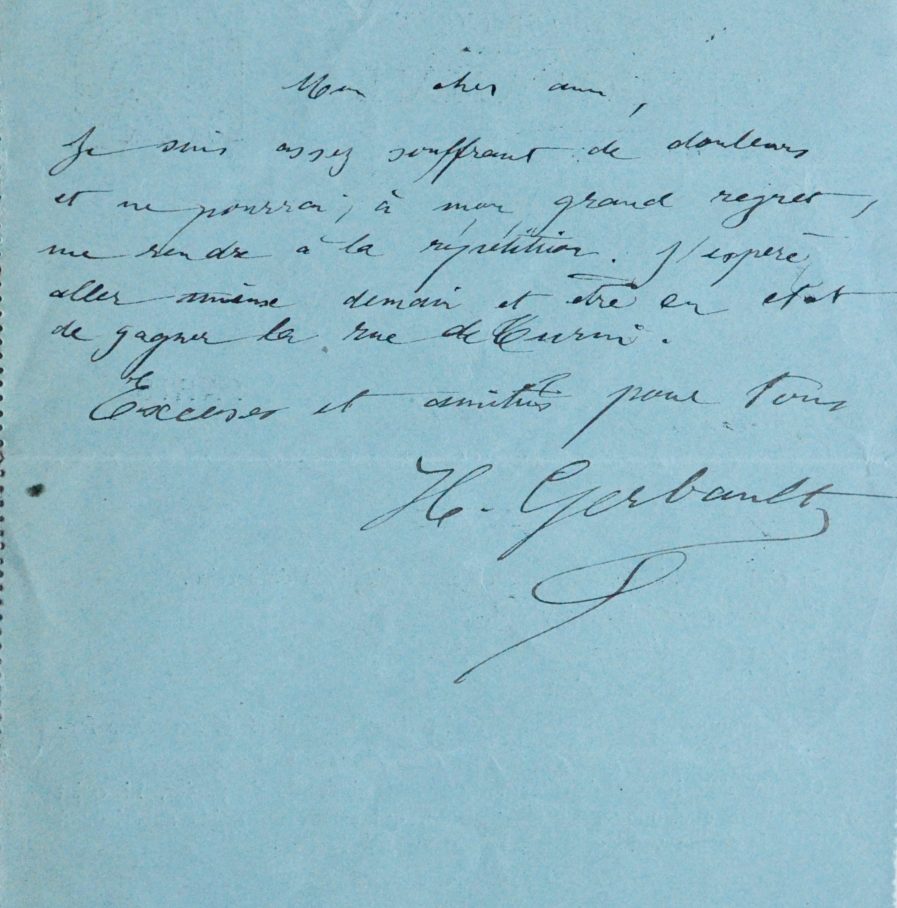 Mon cher ami,
Je suis assez souffrant de douleurs
et ne pourrai, à mon grand regret,
me rendre à la répétition. J'espère
aller mieux demain et être en état
de gagner la rue de Turin.
Excuses et amitiés pour tous
H. Gerbault